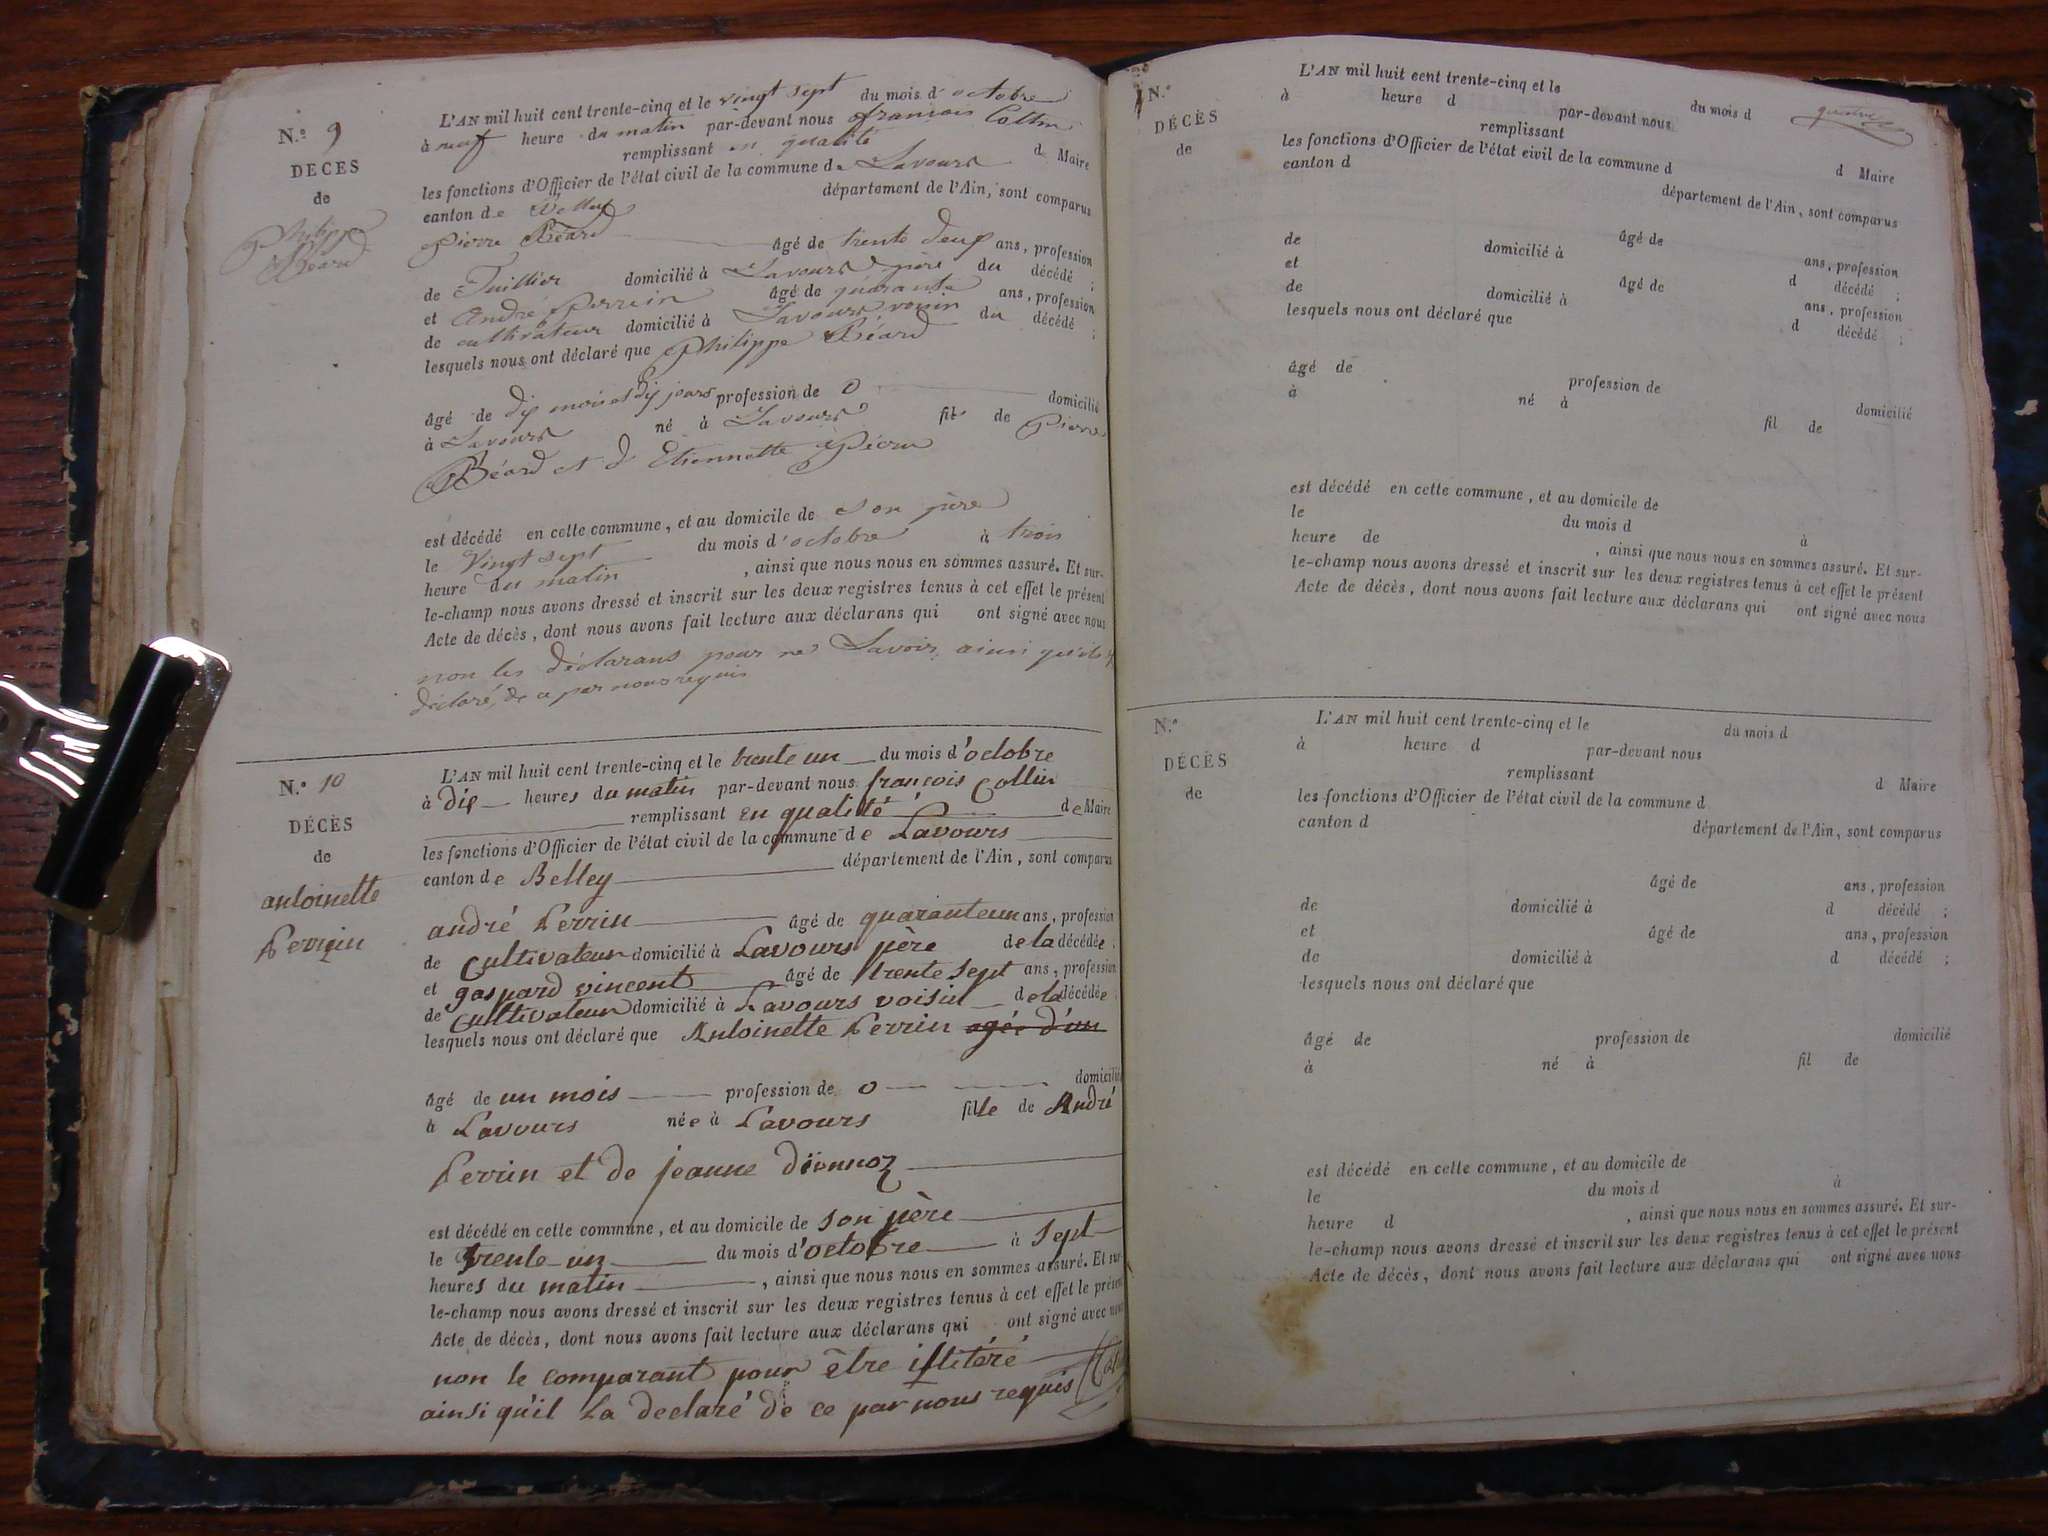 N.º 9
DÉCÈS
de
Philippe
Béard
L'AN mil huit cent trente-cinq et le vingt sept du mois d'octobre
à neuf heure du matin par-devant nous francois Collin
remplissant en qualité d Maire
les fonctions d'Officier de l'état civil de la commune de Lavours
canton de Belley département de l'Ain, sont comparus
Pierre Béard âgé de trente deux ans, profession
de Tuillier domicilié à Lavours père du décédé ;
et André Perrein âgé de quarante ans, profession
de cultivateur domicilié à Lavours voisin du décédé ;
lesquels nous ont déclaré que Philippe Béard
âgé de dix mois et dix jours profession de 0 domicilié
à Lavours né à Lavours fils de Pierre
Béard et d'Etiennette
est décédé en cette commune, et au domicile de son père
le Vingt sept du mois d'octobre à trois
heure du matin , ainsi que nous nous en sommes assuré. Et sur-
le-champ nous avons dressé et inscrit sur les deux registres tenus à cet effet le présent
Acte de décès, dont nous avons fait lecture aux déclarans qui ont signé avec nous
non les déclarans pour ne Savoir, ainsi qu'ils
déclaré, de ce par nous réquis
N.º 10
DÉCÈS
de
antoinette
Perrein
L'AN mil huit cent trente-cinq et le trente un du mois d'octobre
à dix heures du matin par-devant nous françois Collin
remplissant en qualité de Maire
les fonctions d'Officier de l'état civil de la commune de Lavours
canton de Belley département de l'Ain, sont comparus
andré Perrin âgé de quaranteun ans, profession
de Cultivateur domicilié à Lavours père de la décédée ;
et gaspard vincent âgé de trente sept ans, profession
de Cultivateur domicilié à Lavours voisin de la décédée ;
lesquels nous ont déclaré que Antoinette Perrin agée d'un
âgé de un mois profession de 0 domicilié
à Lavours née à Lavours fille de André
Perrin et de jeanne diennoz
est décédé en cette commune, et au domicile de son père
le trente un du mois d'octobre à sept
heures du matin , ainsi que nous nous en sommes assuré. Et sur-
le-champ nous avons dressé et inscrit sur les deux registres tenus à cet effet le présent
Acte de décès, dont nous avons fait lecture aux déclarans qui ont signé avec nous
non le comparant pour être illitéré
ainsi qu'il La declaré de ce par nous requis
N.º
DÉCÈS
de
L'AN mil huit cent trente-cinq et le du mois d
à heure d par-devant nous
remplissant d Maire
les fonctions d'Officier de l'état civil de la commune d
canton d département de l'Ain, sont comparus
âgé de ans, profession
de domicilié à d décédé ;
et âgé de ans, profession
de domicilié à d décédé ;
lesquels nous ont déclaré que
âgé de profession de domicilié
à né à fil de
est décédé en cette commune, et au domicile de
le du mois d à
heure de , ainsi que nous nous en sommes assuré. Et sur-
le-champ nous avons dressé et inscrit sur les deux registres tenus à cet effet le présent
Acte de décès, dont nous avons fait lecture aux déclarans qui ont signé avec nous
N.º
DÉCÈS
de
L'AN mil huit cent trente-cinq et le du mois d
à heure d par-devant nous
remplissant d Maire
les fonctions d'Officier de l'état civil de la commune d
canton d département de l'Ain, sont comparus
âgé de ans, profession
de domicilié à d décédé ;
et âgé de ans, profession
de domicilié à d décédé ;
lesquels nous ont déclaré que
âgé de profession de domicilié
à né à fil de
est décédé en cette commune, et au domicile de
le du mois d à
heure d , ainsi que nous nous en sommes assuré. Et sur-
le-champ nous avons dressé et inscrit sur les deux registres tenus à cet effet le présent
Acte de décès, dont nous avons fait lecture aux déclarans qui ont signé avec nous